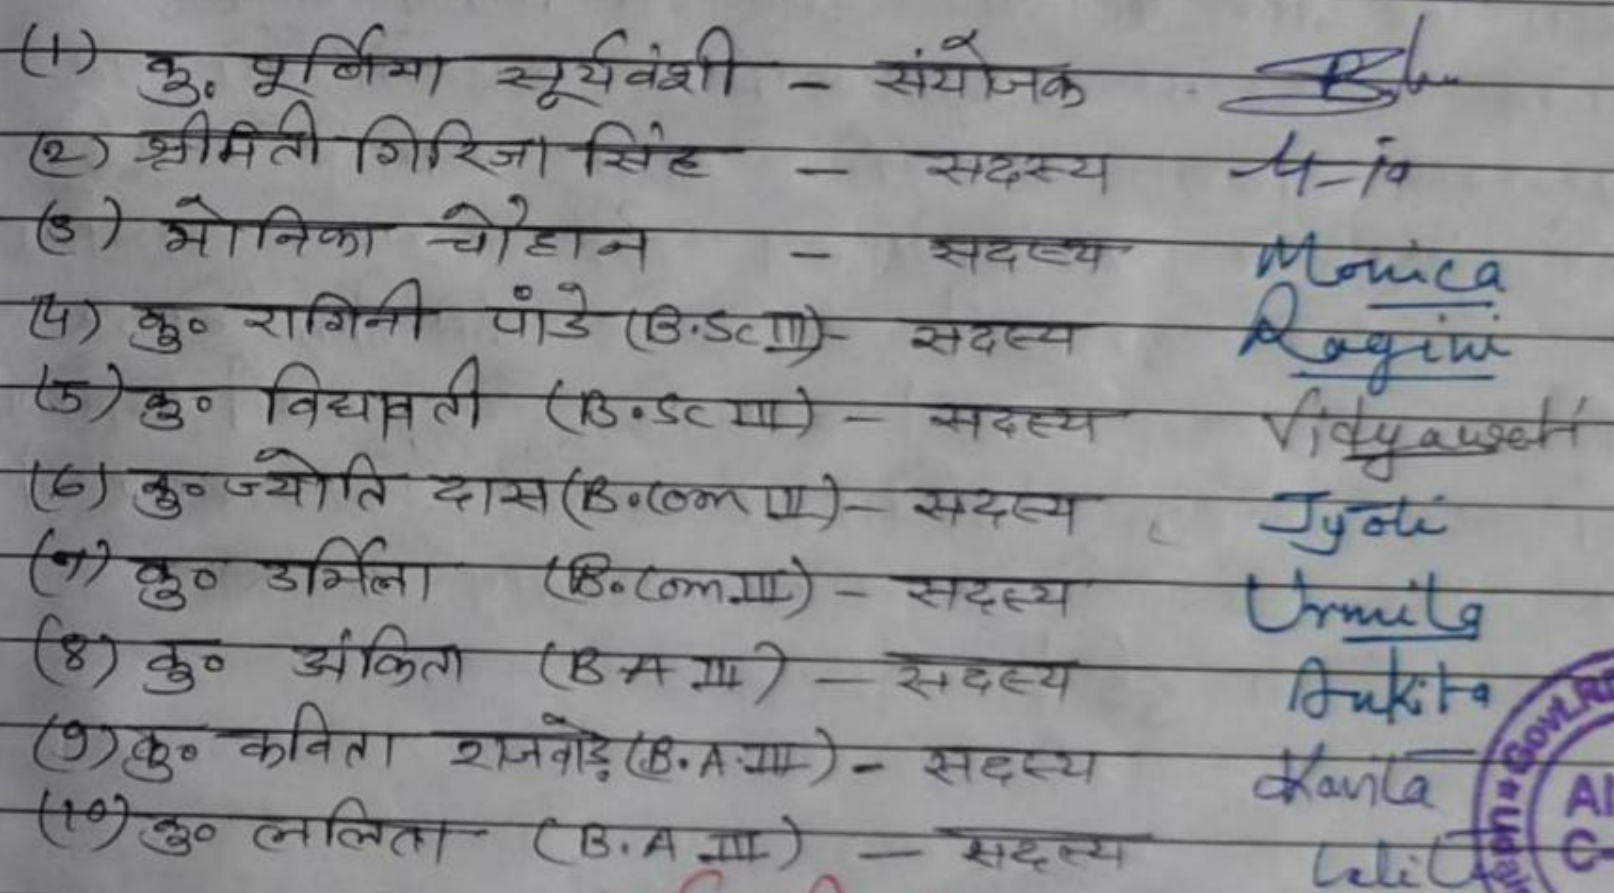 (1) कु. पूर्णिमा सूर्यवंशी - संयोजक
(2) श्रीमिती गिरिजा सिंह - सदस्य
(3) मोनिका चौहान - सदस्य Monica
(4) कु० रागिनी पांडे (B.Sc III) - सदस्य Ragini
(5) कु० विद्यावती (B.Sc III) - सदस्य Vidyawati
(6) कु० ज्योति दास (B.Com III) - सदस्य Jyoti
(7) कु० उर्मिला (B.Com III) - सदस्य Urmila
(8) कु० अंकिता (B.A III) - सदस्य Ankita
(9) कु० कविता राजवाड़े (B.A. III) - सदस्य Kavita
(10) कु० ललिता (B.A III) - सदस्य